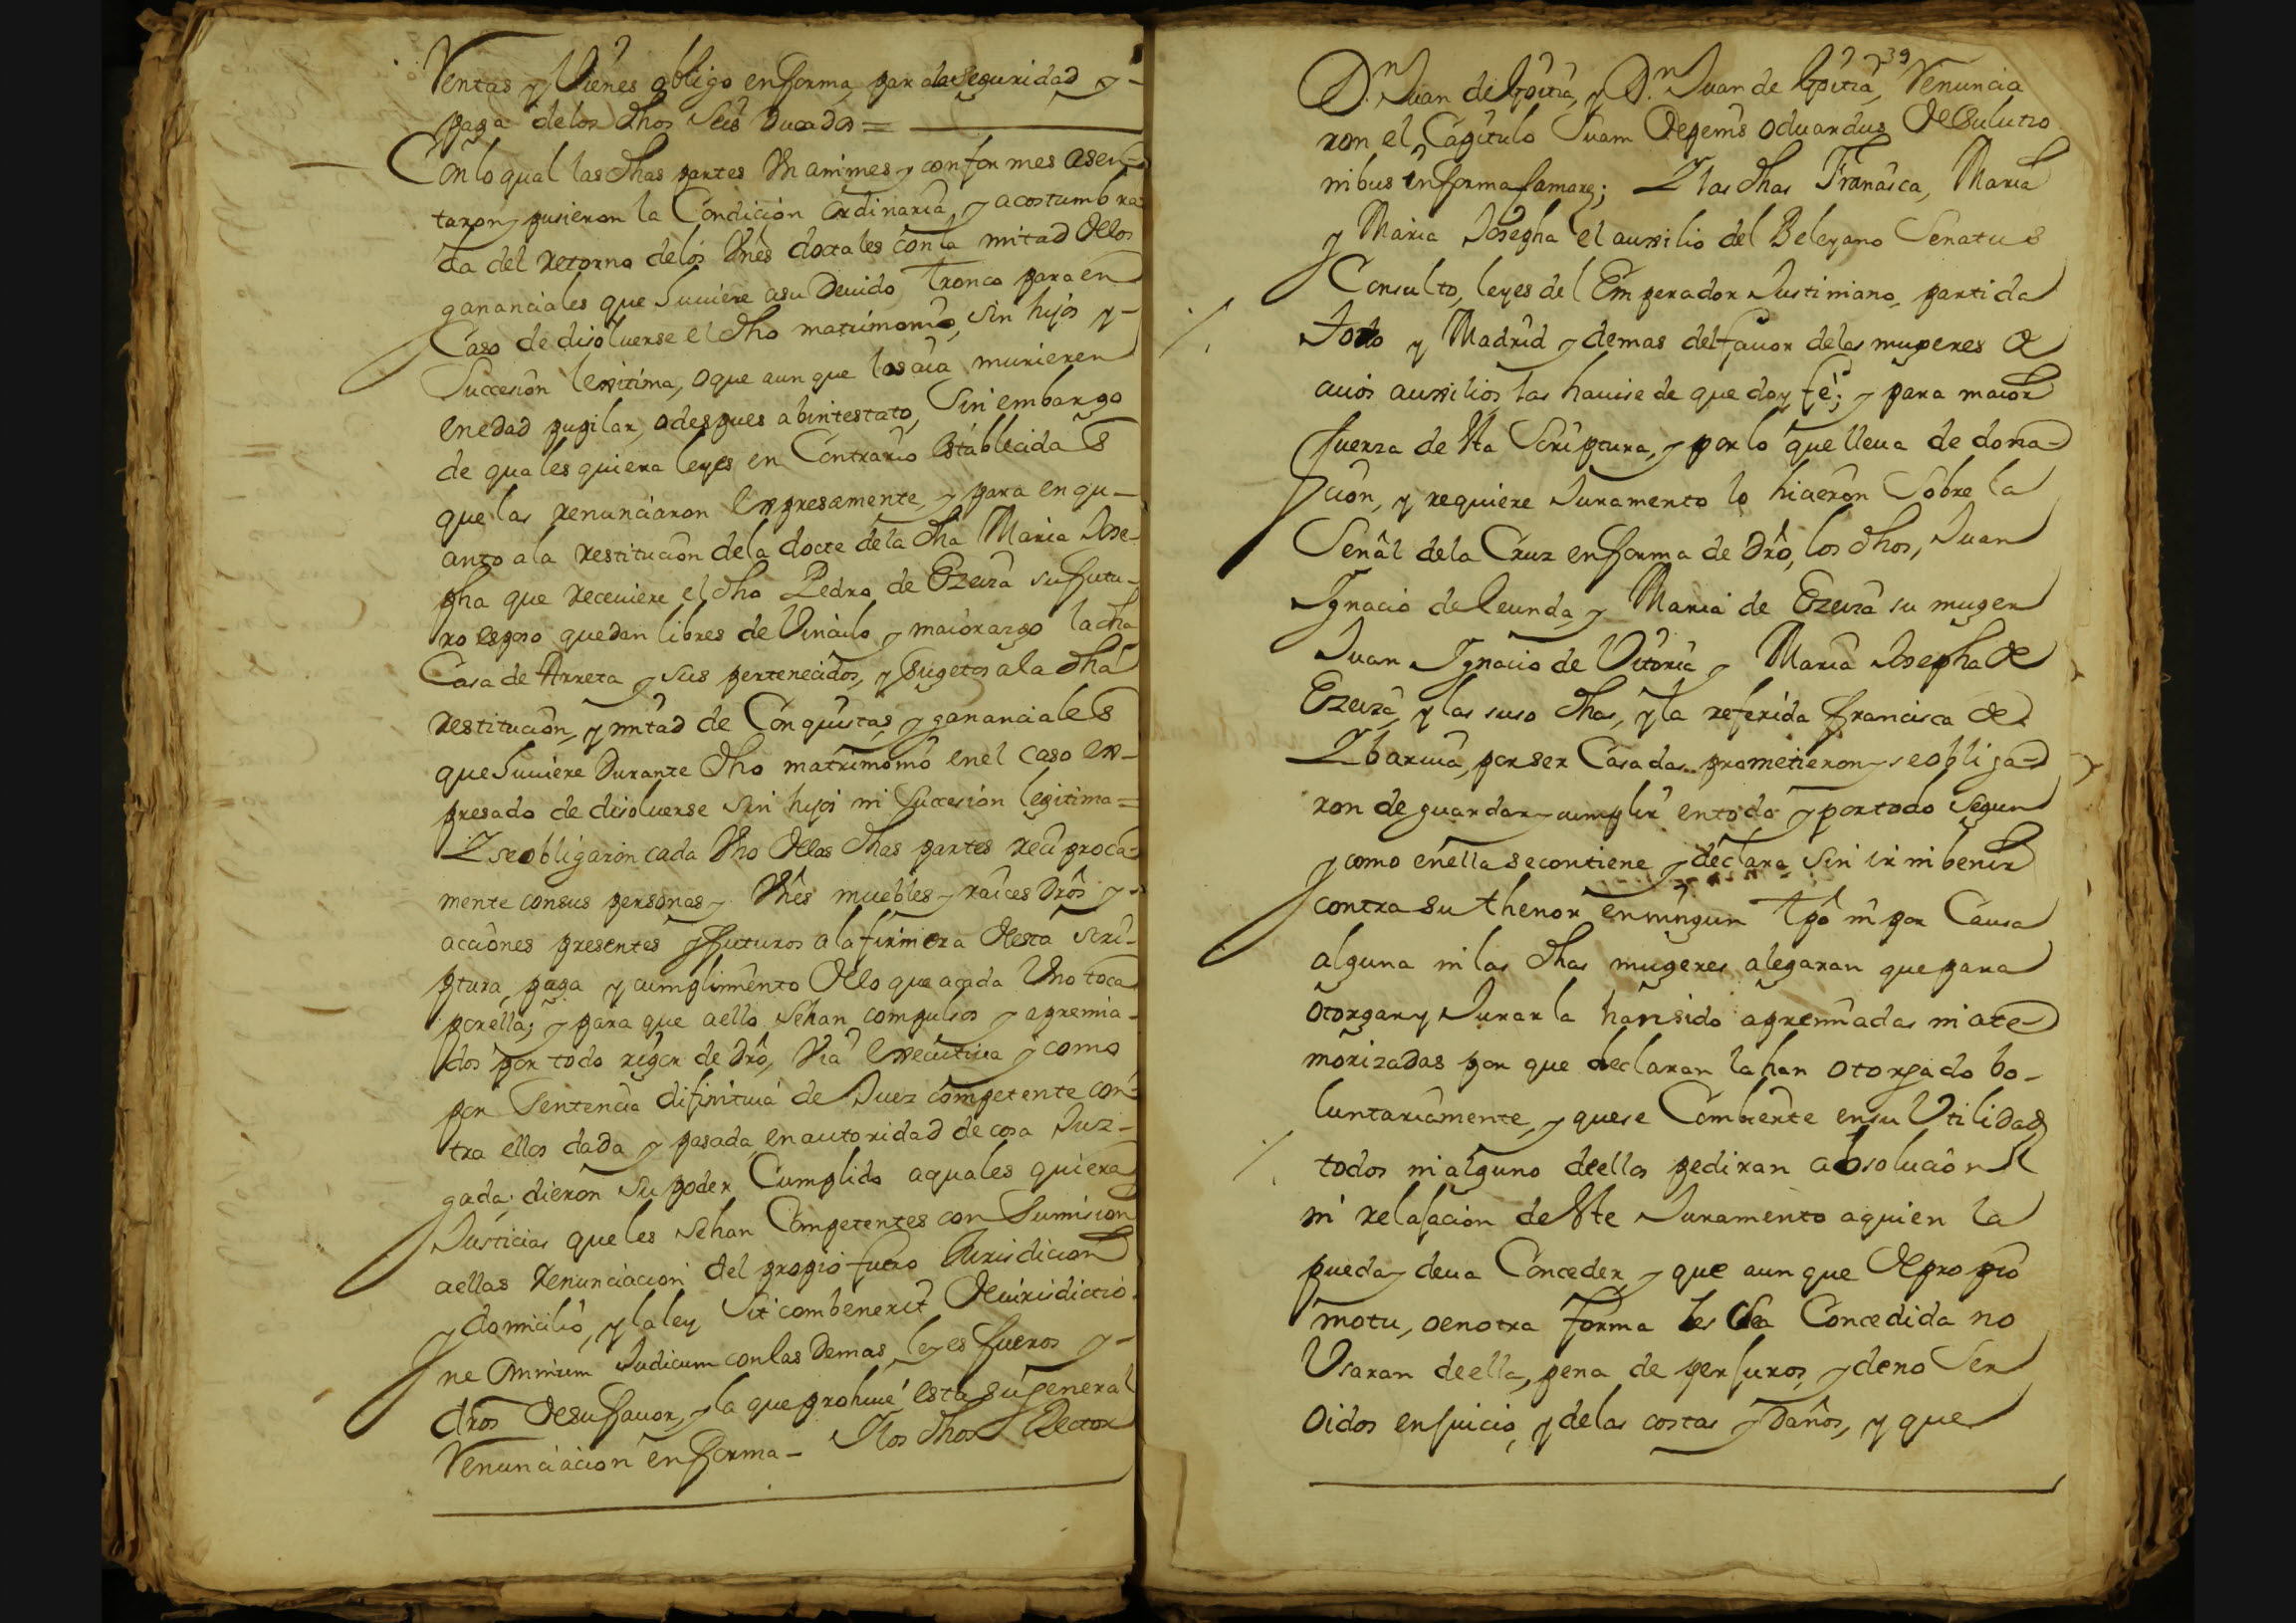 Rentas y Vienes obligo enforma para la Seguridad y-
paga delos dhos Seis Ducados=
Con lo qual las dhas partes Vnanimes y conformes asen-
taron y pusieron la Condicion ordinaria y acostumbra
da del retorno delos Vnēs dotales con la mitad dellos
gananciales que huuiere asu deuido tronco para en
Caso de disoluerse el dho matrimonio, sin hijos y-
Succesion lexitima, o que aunque los aia murieren
enedad pupilar, o despues abintestato, Sin embargo
de quales quiera leyes en Contrario establecidas
que las renunciaron expresamente, y para en qu-
anto ala restitucion dela docte dela dha Maria Jose-
pha que receuiere el dho Pedro de Ezeiza su futu-
ro esposo quedan libres de Vinculo y maiorazgo la dha
Casa de Arreta y sus pertenecidos, y sugetos ala dha
restitucion, y mitad de Conquistas, y gananciales
que huuiere Durante dho matrimonio enel caso ex-
presado de disoluerse sin hijos ni Succesion legitima=
Y se obligaron cada Vno dellas dhas partes reciproca
mente consus personas y Vnēs muebles y raices drōs y-
acciones presentes y futuros ala firmeza desta scri-
ptura, paga y cumplimento dello que acada Vno toca
por ella; y para que aello sehan compulsos y apremia-
dos por todo rigor de drō, Via executiua y como
por Sentencia difinitiua de Juez competente con-
tra ellos dada y pasada en autoridad de cosa Juz-
gada; dieron su poder Cumplido aquales quiera
Justicias que les sehan Competentes con Sumision
aellas renunciacion del propio fuero Jurisdicion
y domicilio, y la ley Sit combenerit de iurisdictio-
ne omnium Judicum con las demas leyes fueros y-
drōs de su fauor, y la que prohiue esta su general
Renunciacion en forma- Y los dhos Rector
39
Dn. Juan de Goitia, y Dn. Juan de Goitia, Renuncia
ron el Capitulo Suam de penis oduardus de sulutio
nibus en forma camare; Y las dhas Francisca, Maria
y Maria Josepha el auxilio del Beleyano Senatus
Consulto, leyes del Emperador Justiniano, partida
Toro y Madrid y demas del fauor delas mugeres de
cuios auxilios las hauise de que doy fe; y para maior
fuerza de Vta Scriptura, y por lo que lleua de dona-
cion, y requiere Juramento lo hicieron Sobre la
Señal dela Cruz enforma de drō, los dhos, Juan
Ygnacio de leunda, y Maria de Ezeiza su muger
Juan Ygnacio de Vitoria y Maria Josepha de
Ezeiza, y las suso dhas, y la referida francisca de
Ybarvia, por ser Casadas prometieron y se obliga-
ron de guardar y cumplir en todo y por todo Segun
y como enella se contiene y declara sin ir ni benir
contra su thenor en ningun tpō ni por Causa
alguna ni las dhas mugeres alegaran que para
otorgar y Jurar la han sido apremiadas ni ate-
morizadas por que declaran la han otorgado bo-
luntariamente, y que se Combierte en su Vtilidad
todos ni alguno de ellos pediran absolucion
ni relajacion de Vste Juramento aquien la
pueda y deua Conceder y que aun que de propio
motu, o en otra forma les sea Concedida no
Vsaran de ella, pena de perjuros, y de no Ser
Oidos en juicio, y delas costas y daños, y que